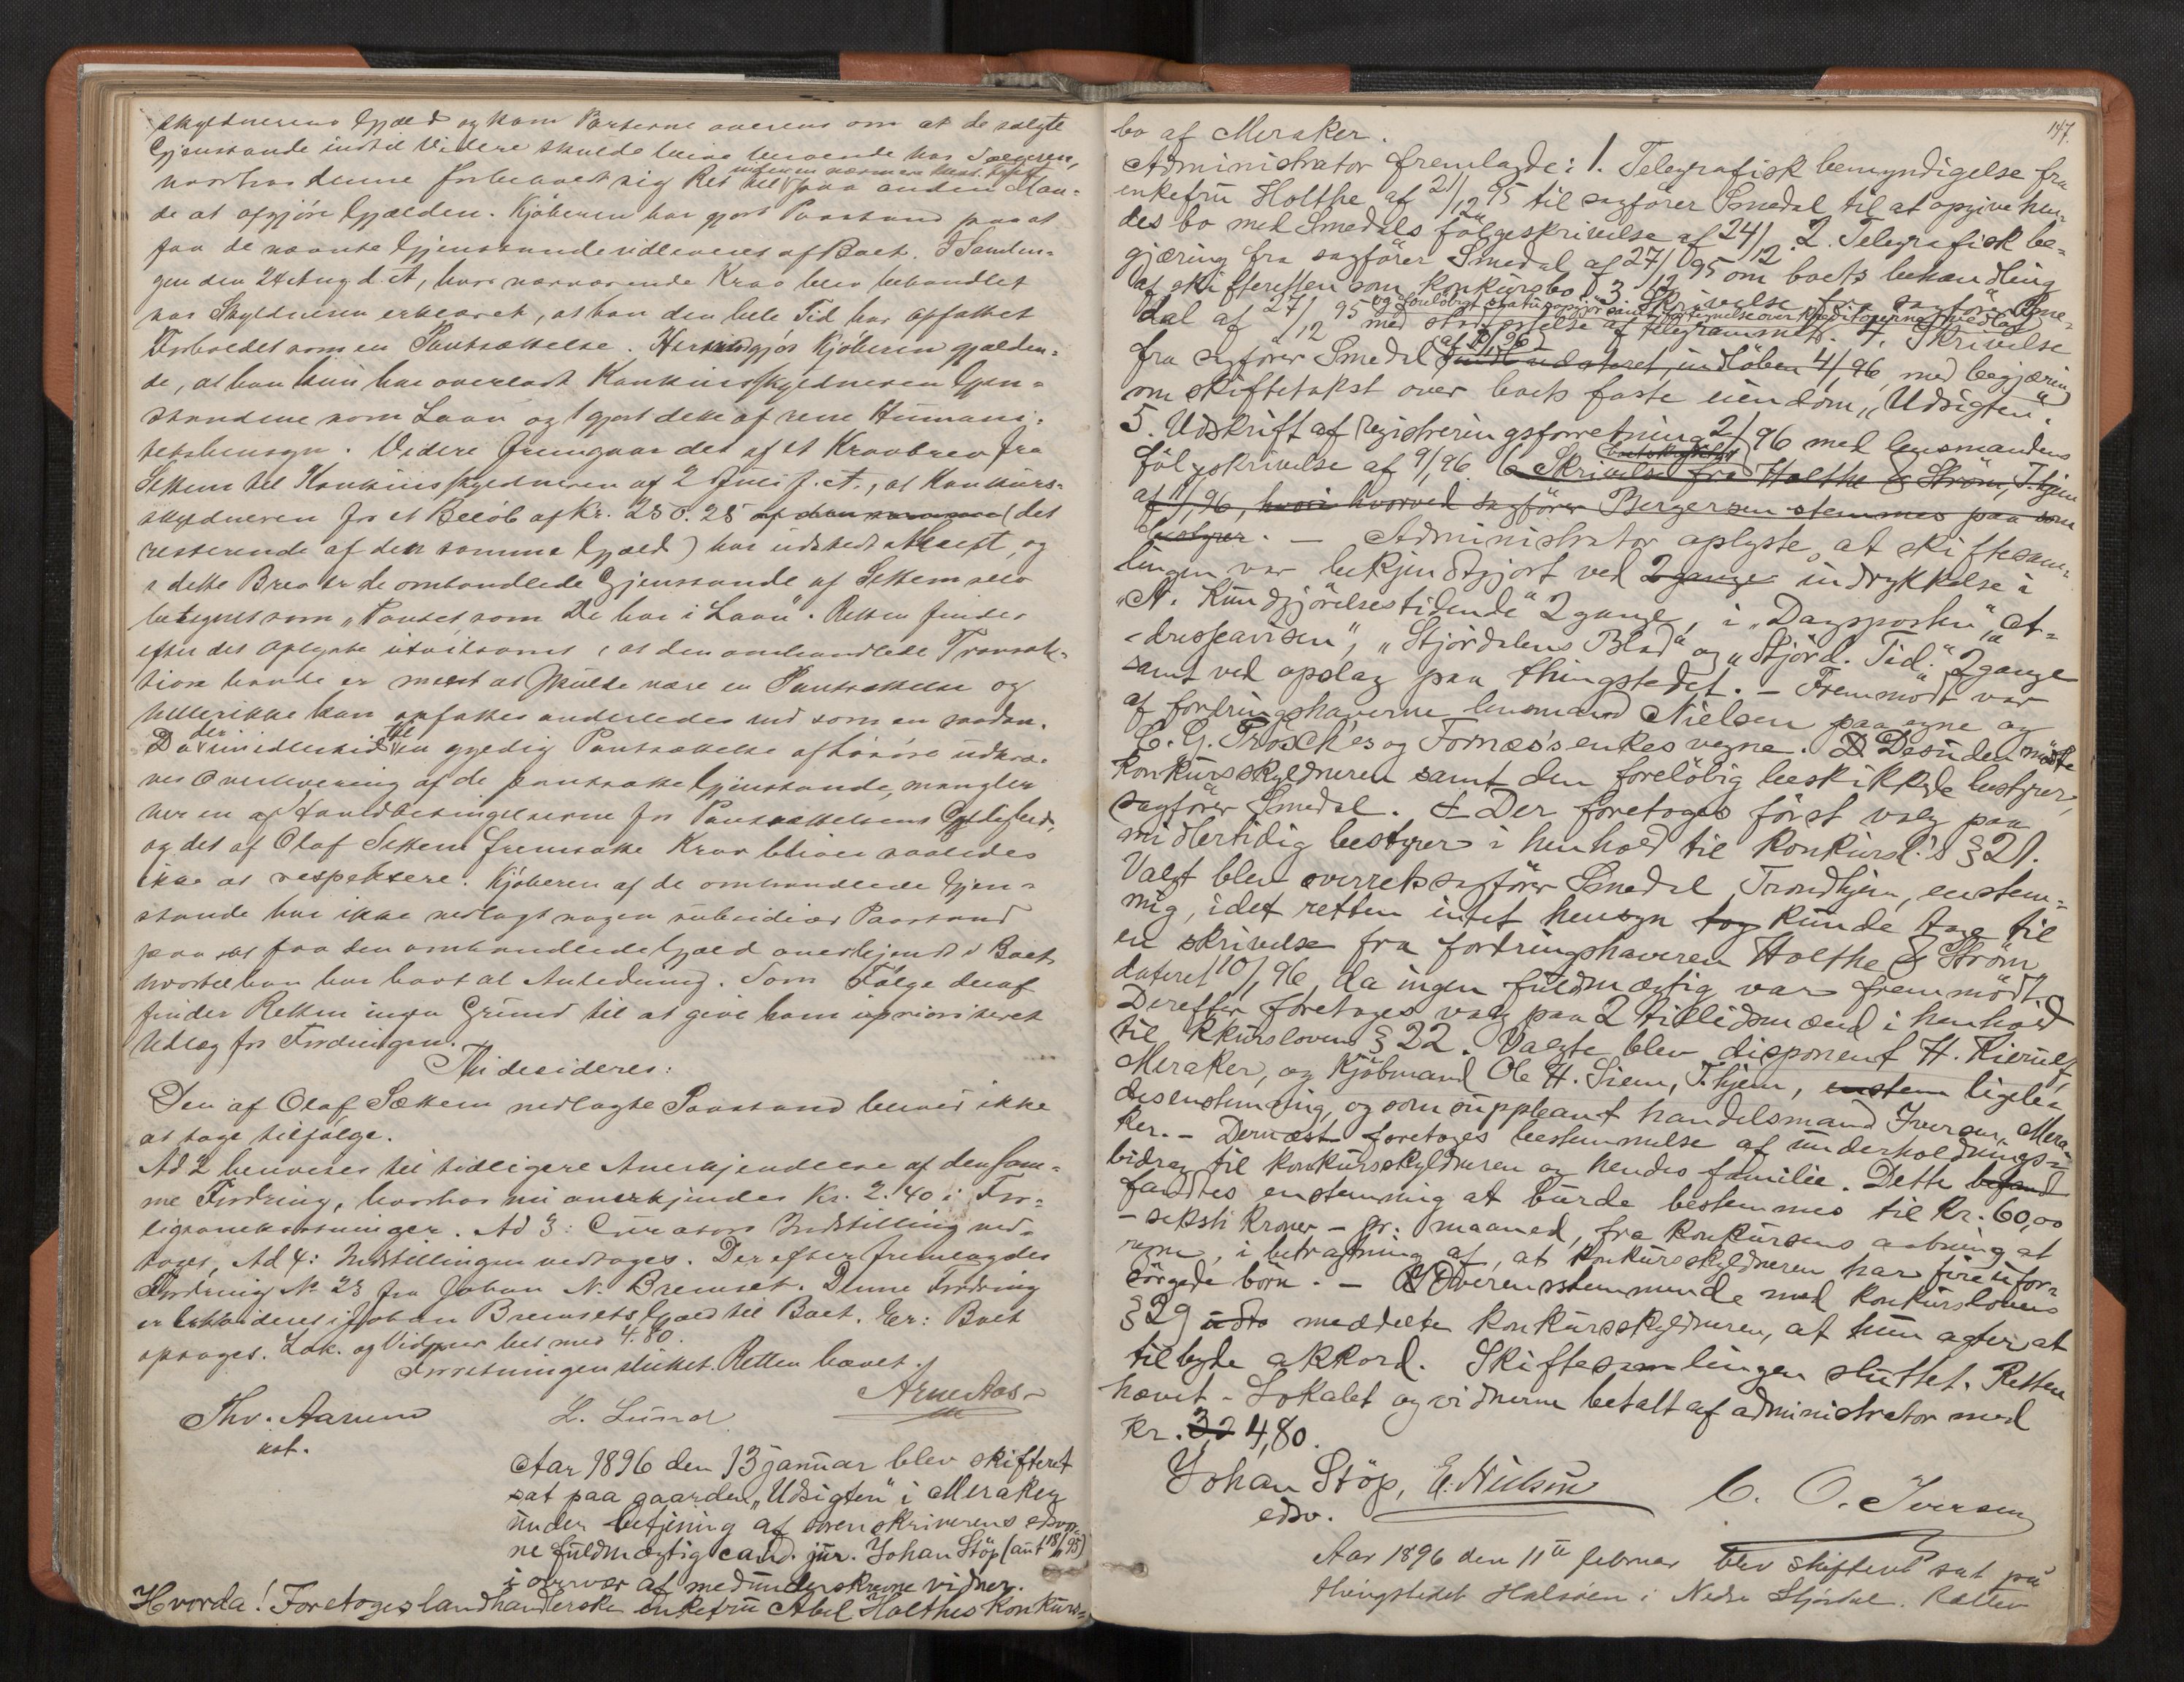 skyldnerens Gjæld og kom Parterne overens om at de solgte
Gjenstande indtil Videre skulde beroende hos Sælgeren,
hvorhos denne forbeholdt sig Ret til paa anden Maa-
de at afgjöre Gjælden. Kjöberen har gjort Paastand paa at
faa de nævnte Gjenstande udleveret af Boet. I Samlin-
gen den 24 Aug d. A, hvor nærværende Krav blev behandlet
har Skyldneren erklæret, at han den hele Tid har opfattet
Forholdet som en Pantsættelse. Herimod gjör Kjöberen gjælden-
de, at han kun har overladt Konkursskyldneren Gjen-
standene som Laan og gjort dette af rene Humani-
tetshensyn. Videre fremgaar det af et Kravbrev fra
Settem til Konkursskyldneren af 2 Juli f. A., at Konkurs-
skyldneren for et Belöb af Kr. 250.25 (det
resterende af den samme Gjæld) har udstedt Aksept, og
i dette Brev er de omhandlede Gjenstande af Settem selv
betegnet som „Pantet, som De har i Laan“. Retten finder
efter det oplyste utvilsomt, at den omhandlede Transak-
tion havde er ment at skulde være en Pantsættelse og
hellerikke kan opfattes anderledes end som en saadan.
Da der imidlertid til en gyldig Pantsættelse af Lösöre udkræ-
ves Overlevering af de pantsatte Gjenstande, mangler
her en af Hovedbetingelserne for Pantsættelsens Gyldighed,
og det af Olaf Settem fremsatte Krav bliver saaledes
ikke at respektere. Kjöberen af de omhandlede Gjen-
stande har ikke nedlagt nogen subsidiær Paastand
paa at faa den omhandlede Gjæld anerkjendt i Boet
hvortil han har havt al Anledning. Som Fölge deraf
finder Retten ingen Grund til at give ham uprioriteret
Udlæg for Fordringen.
Thi desideres:
Den af Olaf Settem nedlagte Paastand bliver ikke
at tage tilfölge.
Ad 2 henvises til tidligere Anerkjendelse af den sam-
me Fordring, hvorhos nu anerkjendes Kr. 2.40 i For-
ligsomkostninger. Ad 3: Curators Indstilling ved-
tages, Ad 4: Indstillingen vedtages. Derefter fremlagdes
Fordring No 23 fra Johan N. Bremset. Denne Fordring
er i Johan Bremsets Gjæld til Boet. Er: Boet
optages. Lok. og Vidner bet med 4.80.
Forretningen sluttet. Retten hævet.
Arne Aas
Thv. Aarum L. Lund
kst.
Aar 1896 den 13 januar blev skifteret
sat paa gaarden „Udsigten“ i Meraker
under betjening af sorenskriverens edsvor-
ne fuldmægtig cand. jur. Johan Stöp (aut 18/11 95)
i overvær af medunderskrevne vidner.
Hvorda! Foretoges landhandlerske enkefru Abel Holthes konkurs-
147.
bo af Meraker.
Administrator fremlagde: 1. Telegrafisk bemyndigelse fra
enkefru Holthe af 21/12 95 til sagförer Smedal til at opgive hen-
des bo med Smedals fölgeskrivelse af 24/12. 2. Telegrafisk be-
gjæring fra sagförer Smedal af 27/12 95 om boets behandling
af skifteretten som konkursbo. 3. Skrivelse fra sagförer Sme-
og foreløbigt status samt fortegnelse over kreditorerne vedlagt
dal af 27/12 95 med stadfæstelse af telegrammet. 4. Skrivelse
fra sagförer Smedal indlöben 4/1 96 med begjæring
om skiftetakst over boets faste eiendom, „Udsigten“
5. Udskrift af registreringsforretning 2/1 96 med lensmandens
fölgeskrivelse af 9/1 96. 6 Skrivelse fra Holthe & Ström, T.hjem
af 11/1 96, hvori hvorved sagförer Bergersen stemmes paa som
bestyrer. — Administrator oplyste, at skiftesam-
lingen var bekjendtgjort ved 2 gange indrykkelse i
„N. Kundgjörelsestidende“ 2 gange, i „Dagsposten“, „A-
dresseavisen“, „Stjördalens Blad“ og „Stjörd. Tid.“ 2 gange
samt ved opslag paa thingstedet. — Fremmödt var
af fordringshaverne lensmand Nielsen paa egne og
C. G. Trösch'es og Fornæs's enkes vegne. Desuden mödte
konkursskyldneren samt den forelöbig beskikkede bestyrer,
sagförer Smedal. Der foretoges först valg paa
midlertidig bestyrer i henhold til konkursl.'s § 21.
Valgt blev overretssagförer Smedal Trondhjem, enstem-
mig, idet retten intet hensyn tog kunde tage til
en skrivelse fra fordringshaveren Holthe & Ström
dateret 10/1 96, da ingen fuldmægtig var fremmödt.
Derefter foretoges valg paa 2 tillidsmænd i henhold
til kkursloven § 22. Valgte blev disponent H. Kierulf,
Meraker, og Kjöbmand Ole H. Siem, T.hjem, enstem ligele-
des enstemmig, og som suppleant handelsmand Iversen, Mera-
ker. — Dernæst foretoges bestemmelse af underholdnings-
bidrag til konkursskyldneren og hendes familie. Dette befand
fandtes enstemmig at burde bestemmes til Kr. 60,00
– seksti kroner – pr. maaned, fra konkursens aabning at
regne, i betragtning af, at konkursskyldneren har fire ufor-
sörgede börn. — Overensstemmende med konkurslovens
§ 29 meddelte konkursskyldneren, at hun agter at
tilbyde akkord. Skiftesamlingen sluttet. Retten
hævet – Lokalet og vidnerne betalt af administrator med
kr. 3,2 4,80.
Johan Stöp, E. Nielsen C. O. Iversen
edsv.
Aar 1896 den 11te februar blev skifteret sat på
thingstedet Halsöen i Nedre Stjørdal. Retten